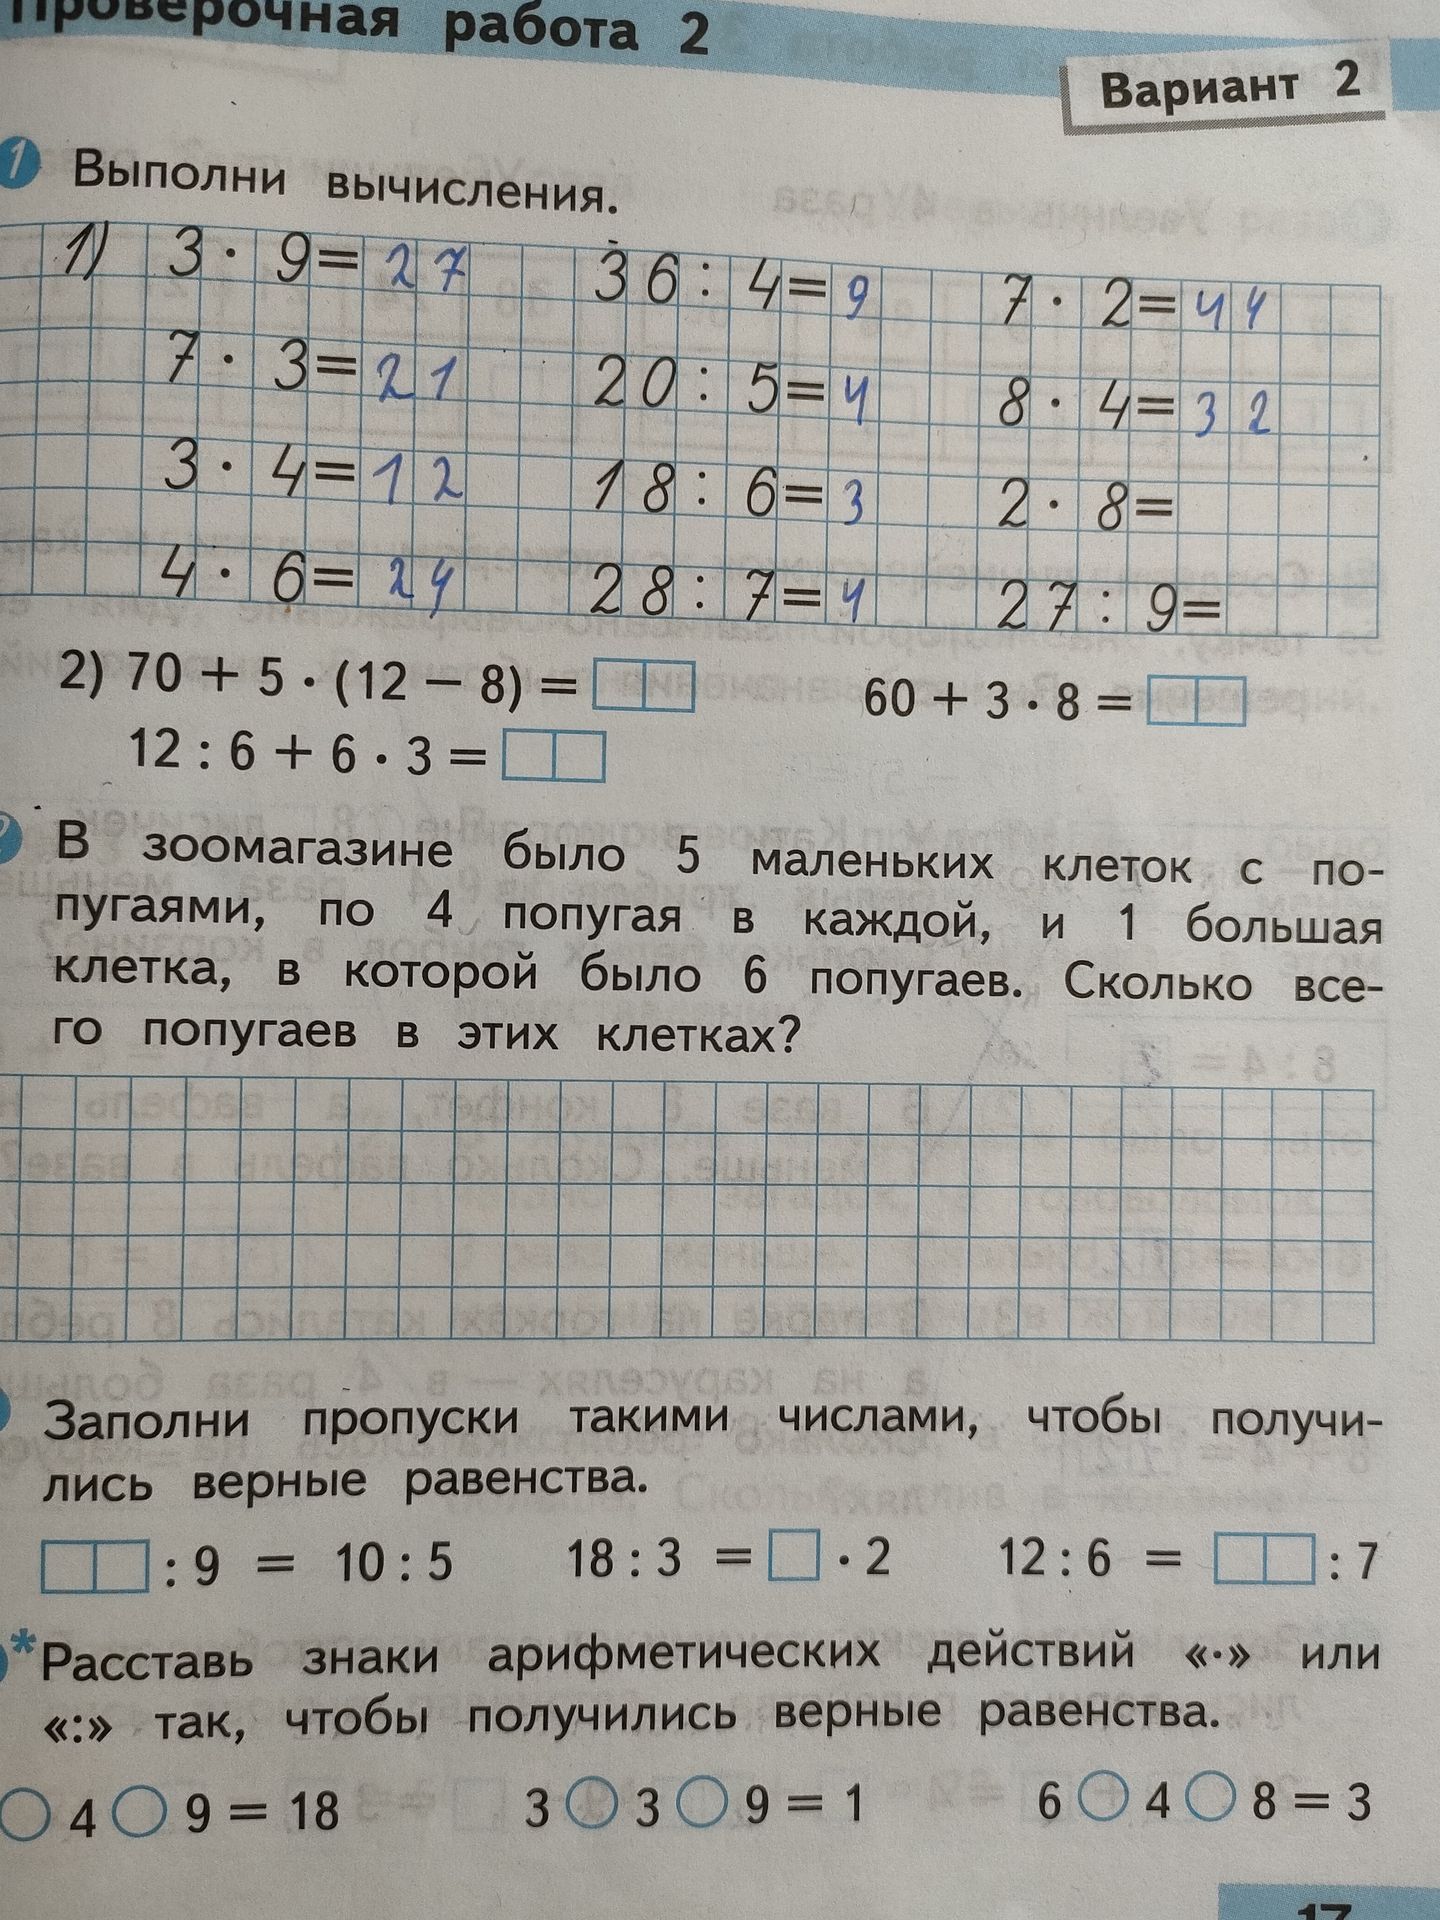 Проверочная работа 2
Вариант 2
1 Выполни вычисления.
1) 3 · 9 = 27 36 : 4 = 9 7 · 2 = 44
7 · 3 = 21 20 : 5 = 4 8 · 4 = 32
3 · 4 = 12 18 : 6 = 3 2 · 8 =
4 · 6 = 24 28 : 7 = 4 27 : 9 =
2) 70 + 5 · (12 − 8) = 60 + 3 · 8 =
12 : 6 + 6 · 3 =
2 В зоомагазине было 5 маленьких клеток с по-
пугаями, по 4 попугая в каждой, и 1 большая
клетка, в которой было 6 попугаев. Сколько все-
го попугаев в этих клетках?
Заполни пропуски такими числами, чтобы получи-
лись верные равенства.
: 9 = 10 : 5 18 : 3 = · 2 12 : 6 = : 7
*Расставь знаки арифметических действий «·» или
«:» так, чтобы получились верные равенства.
4 9 = 18 3 3 9 = 1 6 4 8 = 3
17